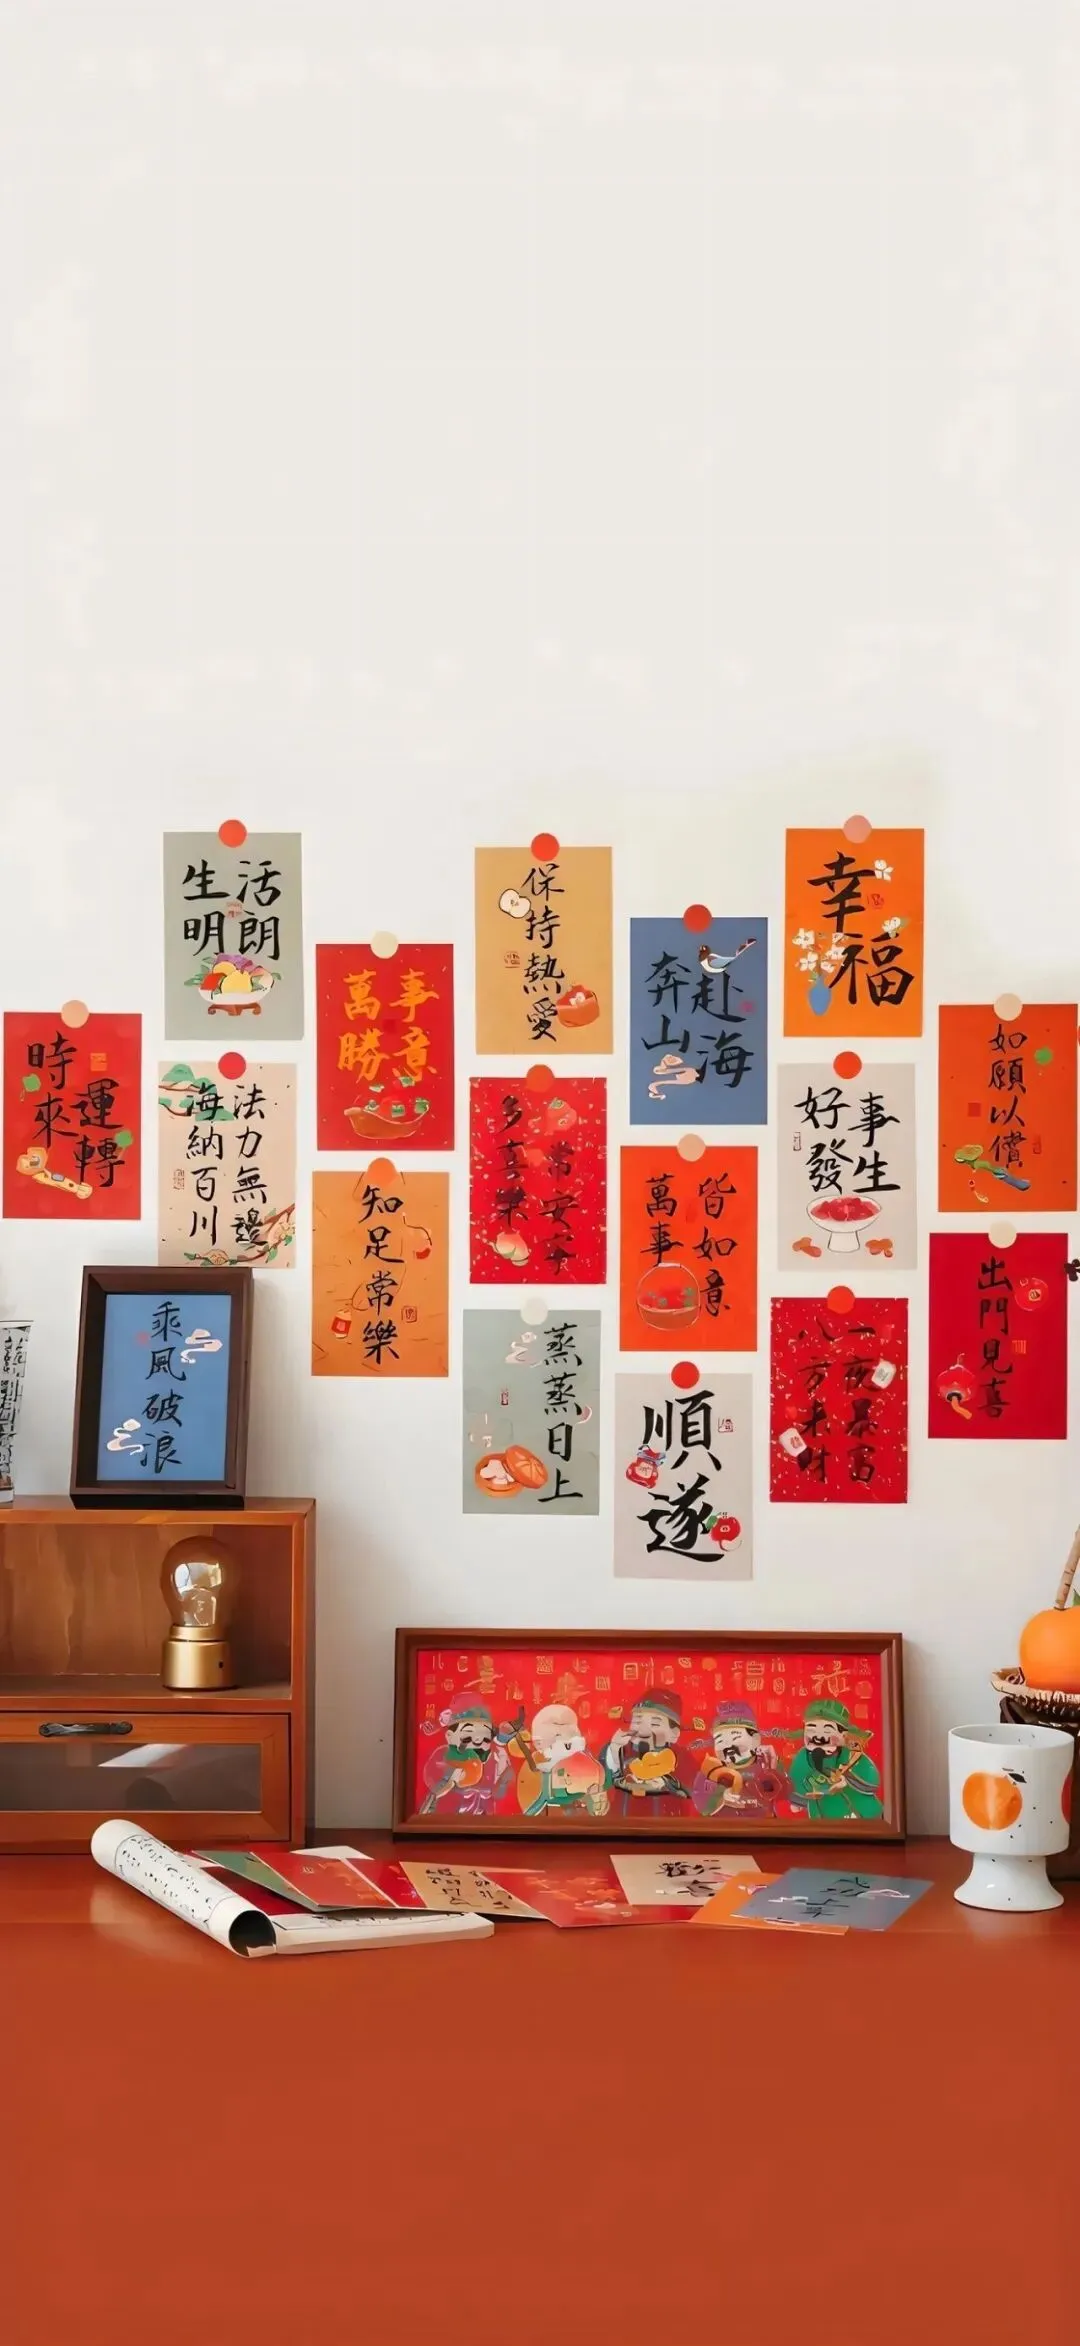 生活
明朗
保持熱愛
幸福
萬事
勝意
奔赴
山海
時來
運轉
如願以償
海納百川
法力無邊
多喜樂
常安寧
好事
發生
知足常樂
萬事
皆如意
出門見喜
乘風破浪
蒸蒸日上
一夜暴富
八方來財
順遂